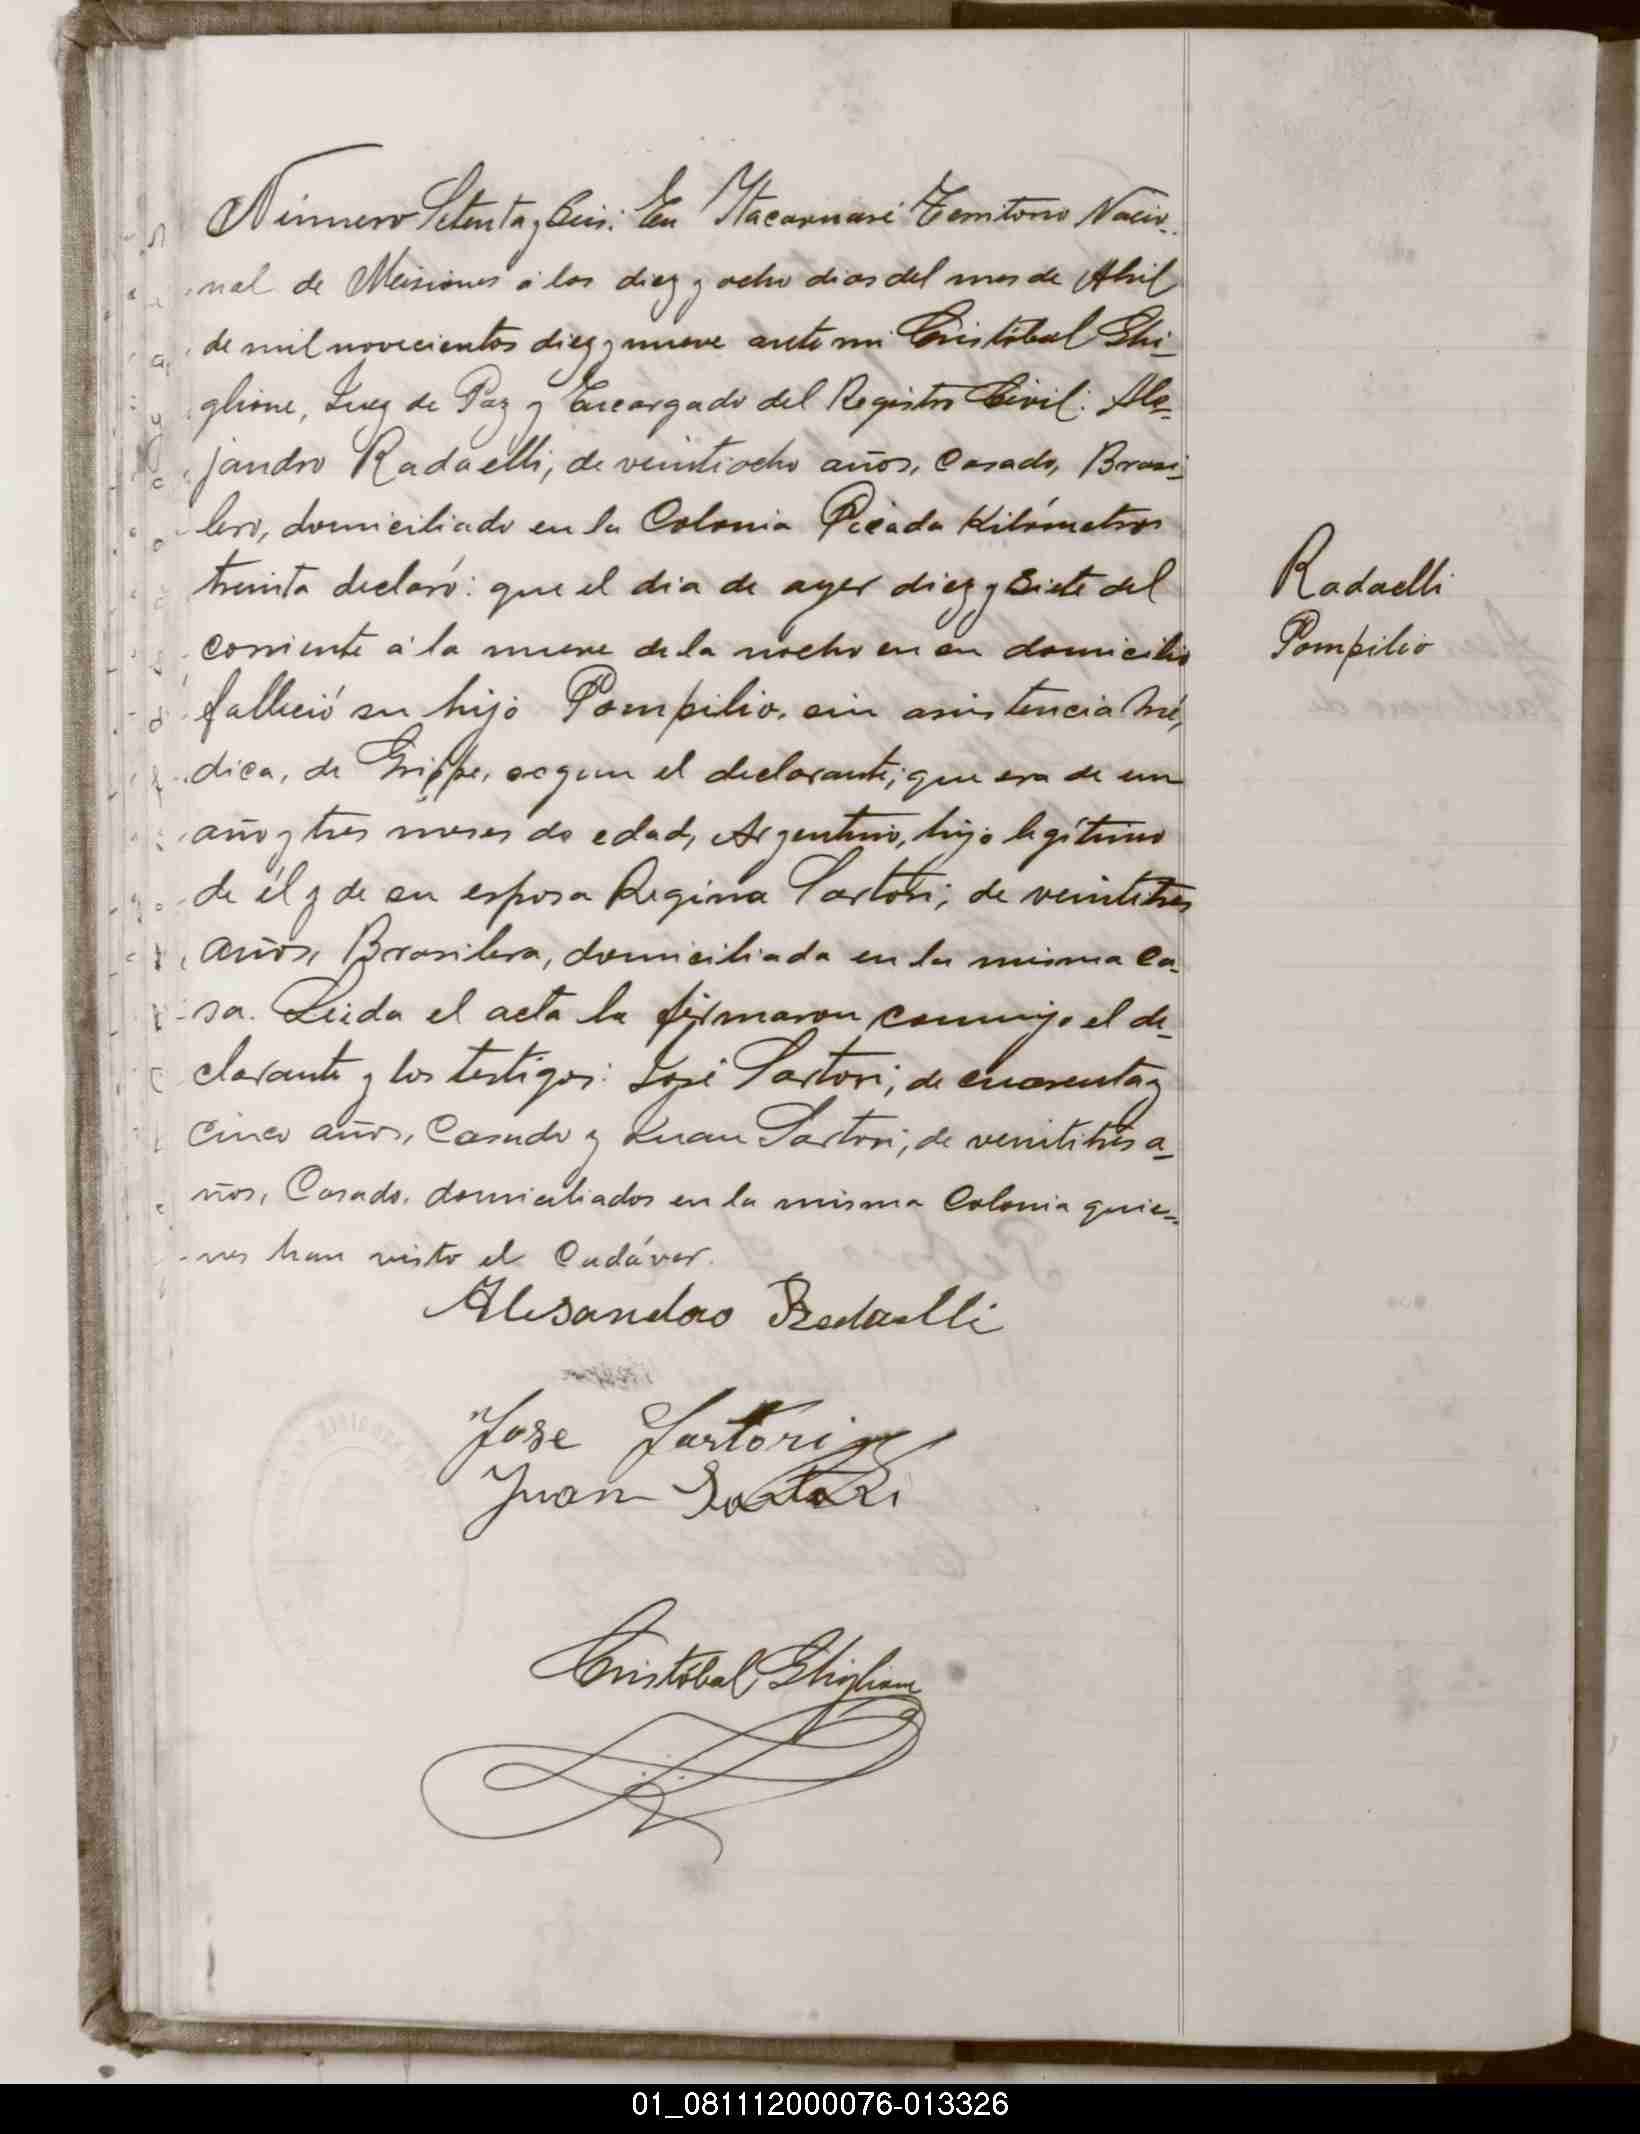 Número Setenta y Seis: En Itacaruaré Territorio Nacio-
nal de Misiones á los diez y ocho dias del mes de Abril
de mil novecientos diez y nueve ante mi Cristóbal Ghi-
glione, Juez de Paz y Encargado del Registro Civil: Ale-
jandro Radaelli, de veintiocho años, Casado, Brasi-
lero, domiciliado en la Colonia Picada Kilómetros
treinta declaró: que el dia de ayer diez y siete del
corriente á la nueve de la noche en su domicilio
falleció su hijo Pompilio, sin asistencia mé-
dica, de Grippe, segun el declarante; que era de un
año y tres meses de edad, Argentino, hijo legítimo
de él y de su esposa Regina Sartori; de veintitres
años, Brasilera, domiciliada en la misma Ca-
sa. Leida el acta la firmaron conmigo el de-
clarante y los testigos: José Sartori; de cuarenta y
cinco años, Casado y Juan Sartori; de veintitrés a-
ños, Casado, domiciliados en la misma Colonia quie-
nes han visto el Cadáver.
Radaelli
Pompilio
Alesandro Redaelli
Jose Sartori
Juan Sartori
Cristóbal Ghiglione
01_081112000076-013326